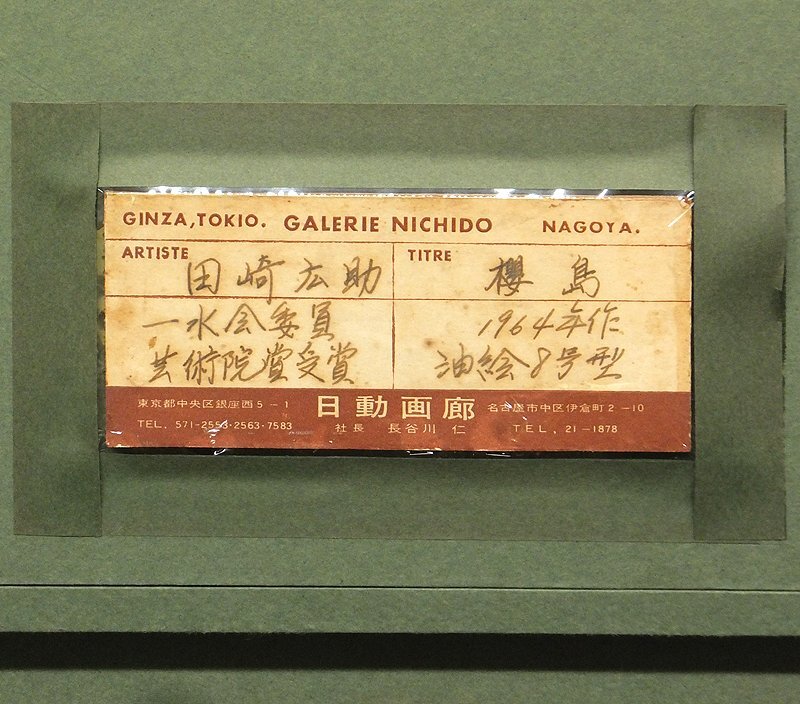 GINZA,TOKIO. GALERIE NICHIDO NAGOYA.
ARTISTE 田崎広助
TITRE 櫻島
一水会委員
芸術院賞受賞
1964年作
油絵8号型
日動画廊
東京都中央区銀座西5-1
TEL. 571-2553・2563・7583
社長 長谷川 仁
名古屋市中区伊倉町2-10
TEL. 21-1878